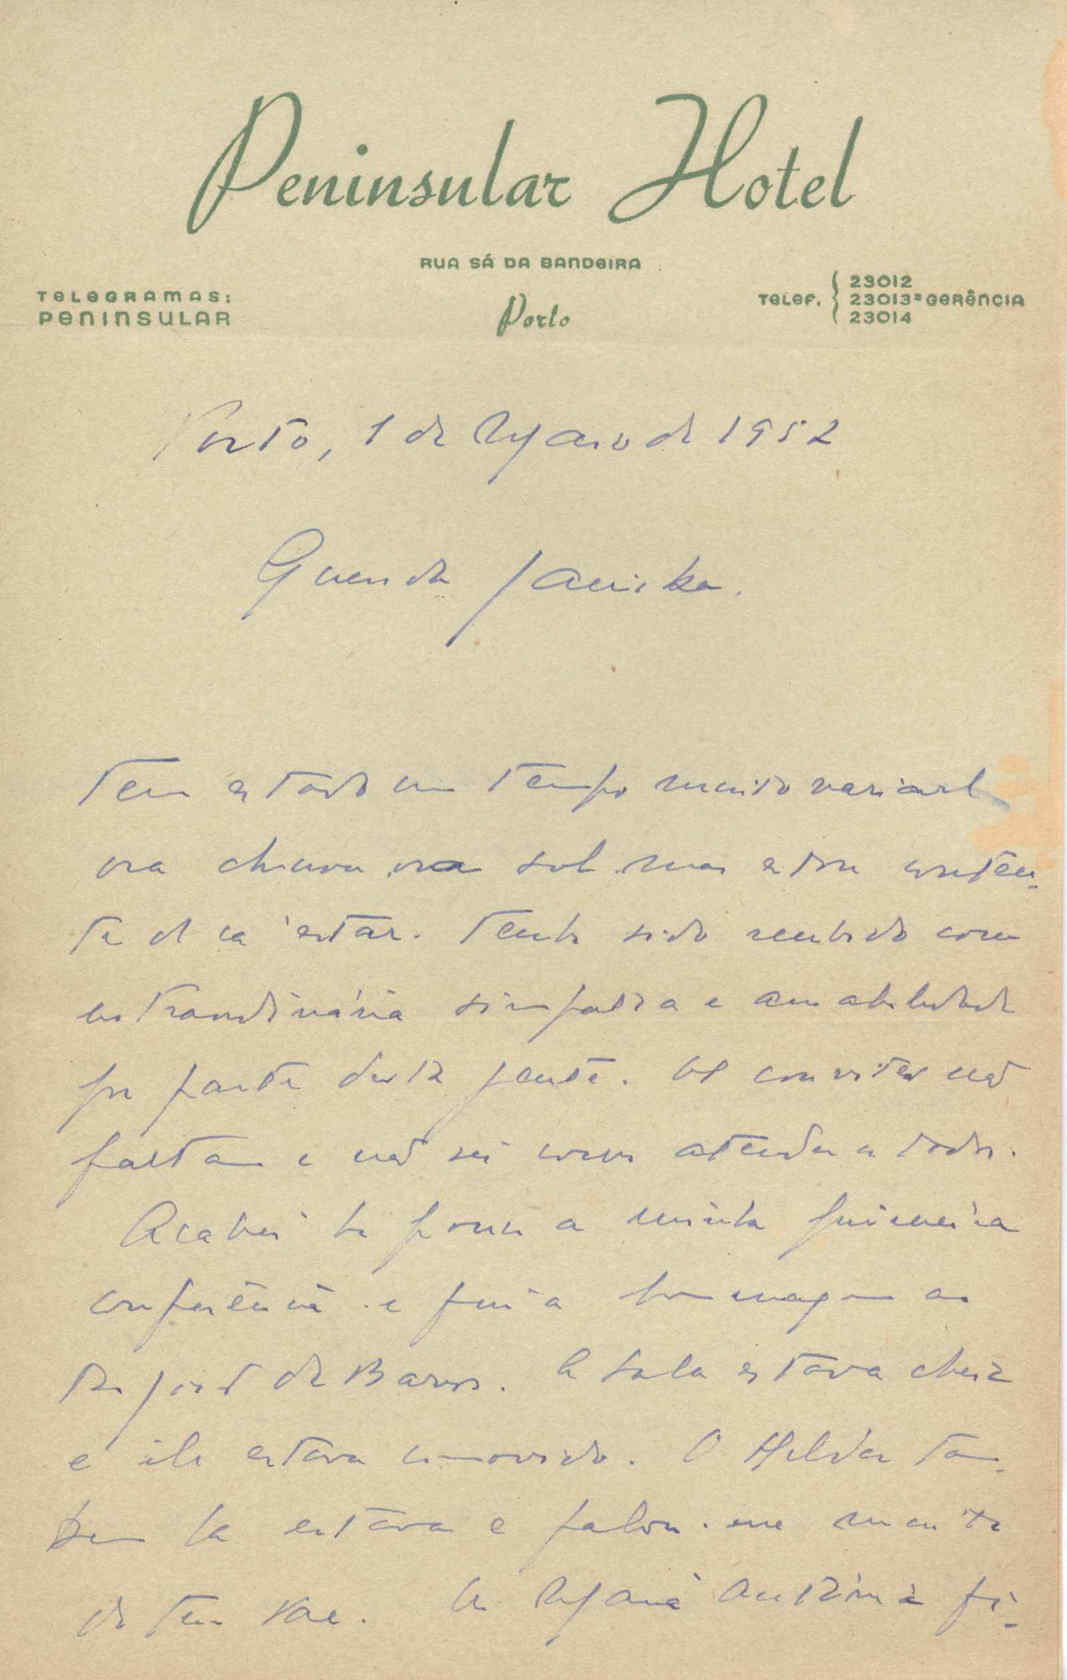 Peninsular Hotel
RUA SÁ DA BANDEIRA
TELEGRAMAS:
PENINSULAR
Porto
TELEF. { 23012
23013=GERÊNCIA
23014
Porto, 1 de Março de 1952
Querida Janicka.
Tem estado um tempo muito variavel
ora chuva ora sol mas estou conten-
te de ca estar. Tenho sido recebido com
extraordinária simpatia e amabilidade
por parte desta gente. Os convites não
faltam e não sei como atender a todos.
Acabei de fazer a minha primeira
conferência e fui a homenagem ao
Dr José de Barros. A sala estava cheia
e ele estava comovido. O Helder tam-
bem la estava e falou-me muito
do teu Pae. A Maria Antónia fi-